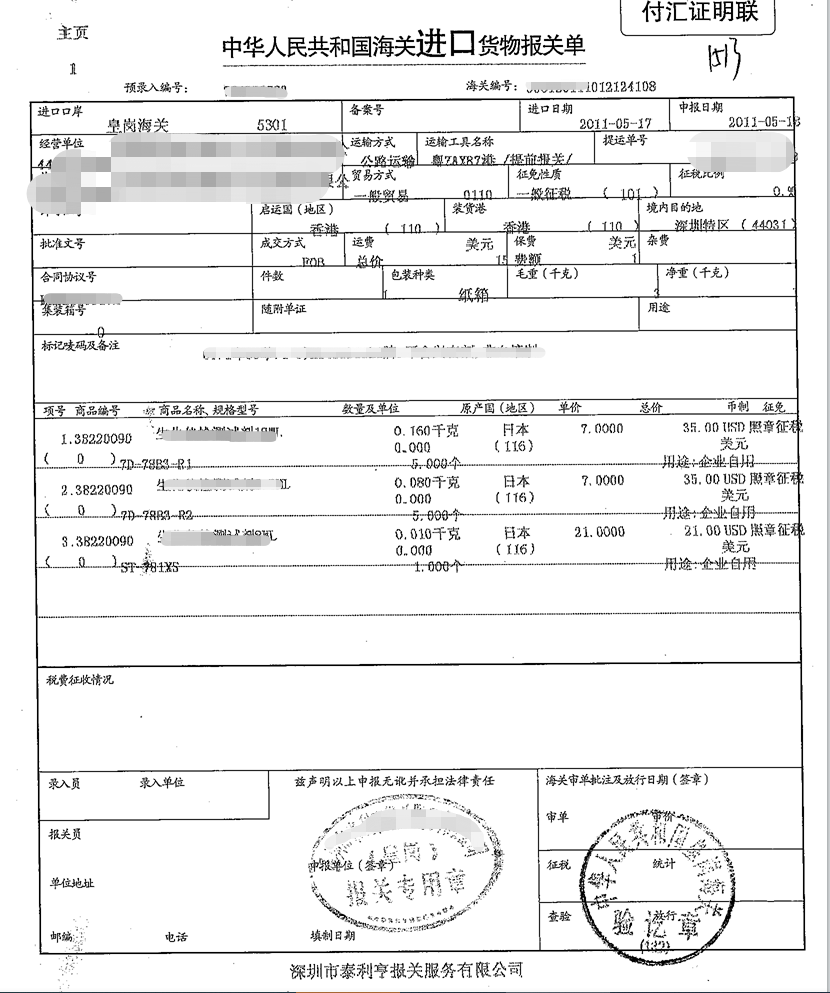 付汇证明联
主页
中华人民共和国海关进口货物报关单
1
1513
预录入编号： 海关编号： 012124108
进口口岸 备案号 进口日期 申报日期
皇岗海关 5301 2011-05-17 2011-05-18
经营单位 运输方式 运输工具名称 提运单号
公路运输 /提前报关/
贸易方式 征免性质 征税比例
一般贸易 0110 一般征税 (101)
启运国(地区) 装货港 境内目的地
香港 (110) 香港 (110) 深圳特区 (44031)
批准文号 成交方式 运费 美元 保费 美元 杂费
FOB 总价
合同协议号 件数 包装种类 毛重(千克) 净重(千克)
纸箱
集装箱号 随附单证 用途
0
标记唛码及备注
项号 商品编号 商品名称、规格型号 数量及单位 原产国(地区) 单价 总价 币制 征免
1.38220090 0.160千克 日本 7.0000 35.00 USD 照章征税
0.000 (116) 美元
( 0 ) 7D-78B3-R1 5.000个 用途:企业自用
2.38220090 0.080千克 日本 7.0000 35.00 USD 照章征税
0.000 (116) 美元
( 0 ) 7D-78B3-R2 5.000个 用途:企业自用
3.38220090 0.010千克 日本 21.0000 21.00 USD 照章征税
0.000 (116) 美元
( 0 ) ST-781XS 1.000个 用途:企业自用
税费征收情况
录入员 录入单位 兹声明以上申报无讹并承担法律责任 海关审单批注及放行日期(签章)
审单 审价
报关员
申报单位(签章) 征税 统计
(皇岗)
报关专用章
单位地址
中华人民共和国皇岗海关
查验 放行
验讫章
(132)
邮编 电话 填制日期
深圳市泰利亨报关服务有限公司